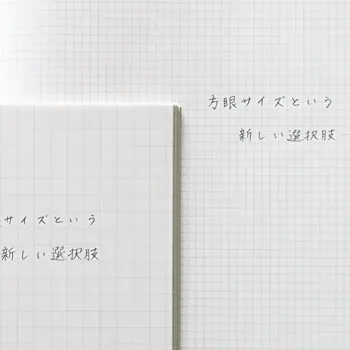 方眼サイズという
新しい選択肢
サイズという
新しい選択肢